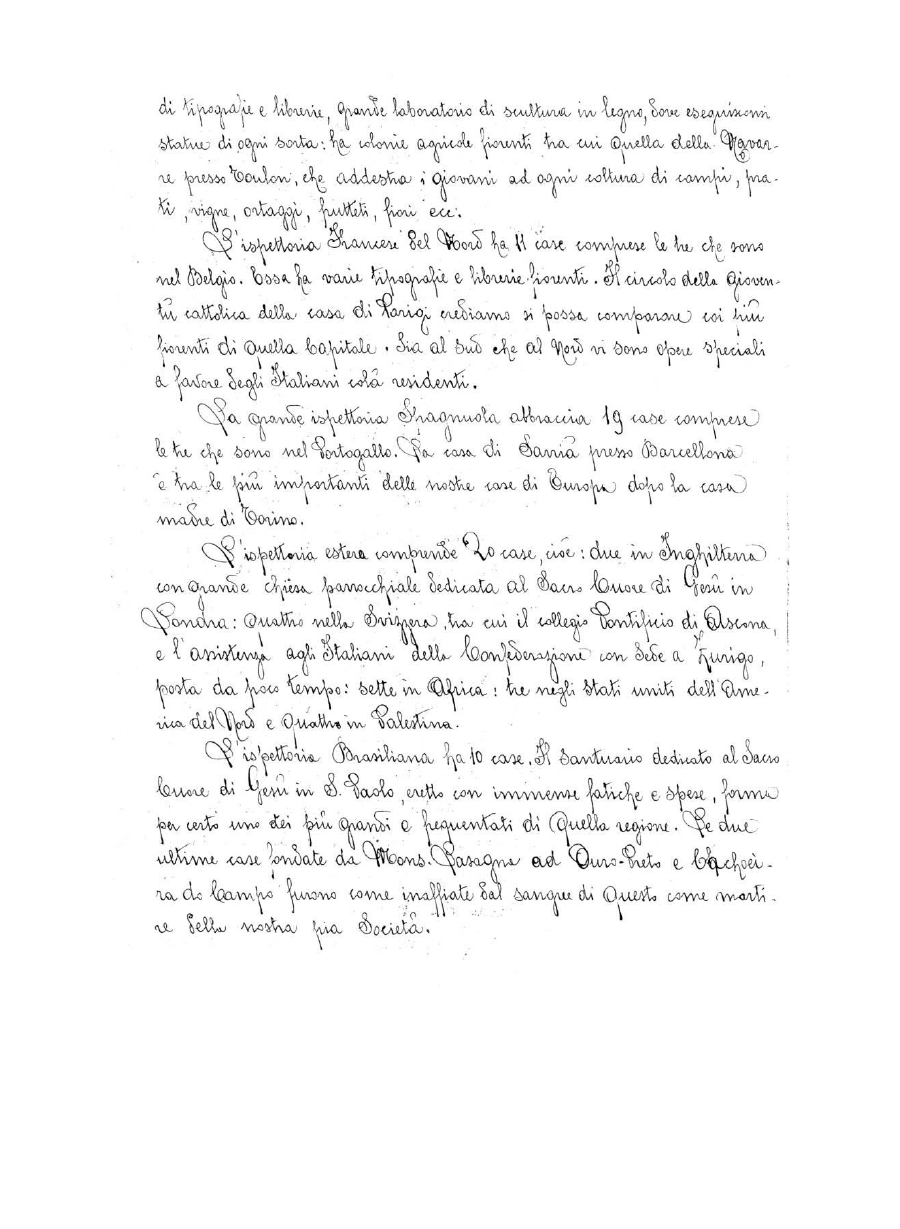 di tipografie e librerie, grande laboratorio di scultura in legno, dove eseguisconsi
statue di ogni sorta: ha colonie agricole fiorenti tra cui quella della Navar-
re presso Toulon, che addestra i giovani ad ogni coltura di campi, pra-
ti, vigne, ortaggi, frutteti, fiori ecc.
L'ispettoria Francese del Nord ha 11 case comprese le tre che sono
nel Belgio. Essa ha varie tipografie e librerie fiorenti. Il circolo della Gioven-
tù cattolica della casa di Parigi crediamo si possa comparare coi più
fiorenti di quella Capitale. Sia al Sud che al Nord vi sono opere speciali
a favore degli Italiani colà residenti.
La grande ispettoria Spagnuola abbraccia 19 case comprese
le tre che sono nel Portogallo. La casa di Sarrià presso Barcellona
è tra le più importanti delle nostre case di Europa dopo la casa
madre di Torino.
L'ispettoria estera comprende 20 case, cioè: due in Inghilterra
con grande chiesa parrocchiale dedicata al Sacro Cuore di Gesù in
Londra: quattro nella Svizzera, tra cui il collegio Pontificio di Ascona,
e l'assistenza agli Italiani della Confederazione con sede a Zurigo,
posta da poco tempo: sette in Africa: tre negli Stati uniti dell'Ame-
rica del Nord e quattro in Palestina.
L'ispettoria Brasiliana ha 10 case. Il santuario dedicato al Sacro
Cuore di Gesù in S. Paolo, eretto con immense fatiche e spese, forma
per certo uno dei più grandi e frequentati di quella regione. Le due
ultime case fondate da Mons. Lasagna ad Ouro-Preto e Cachoei-
ra do Campo furono come inaffiate dal sangue di questo come marti-
re della nostra pia Società.